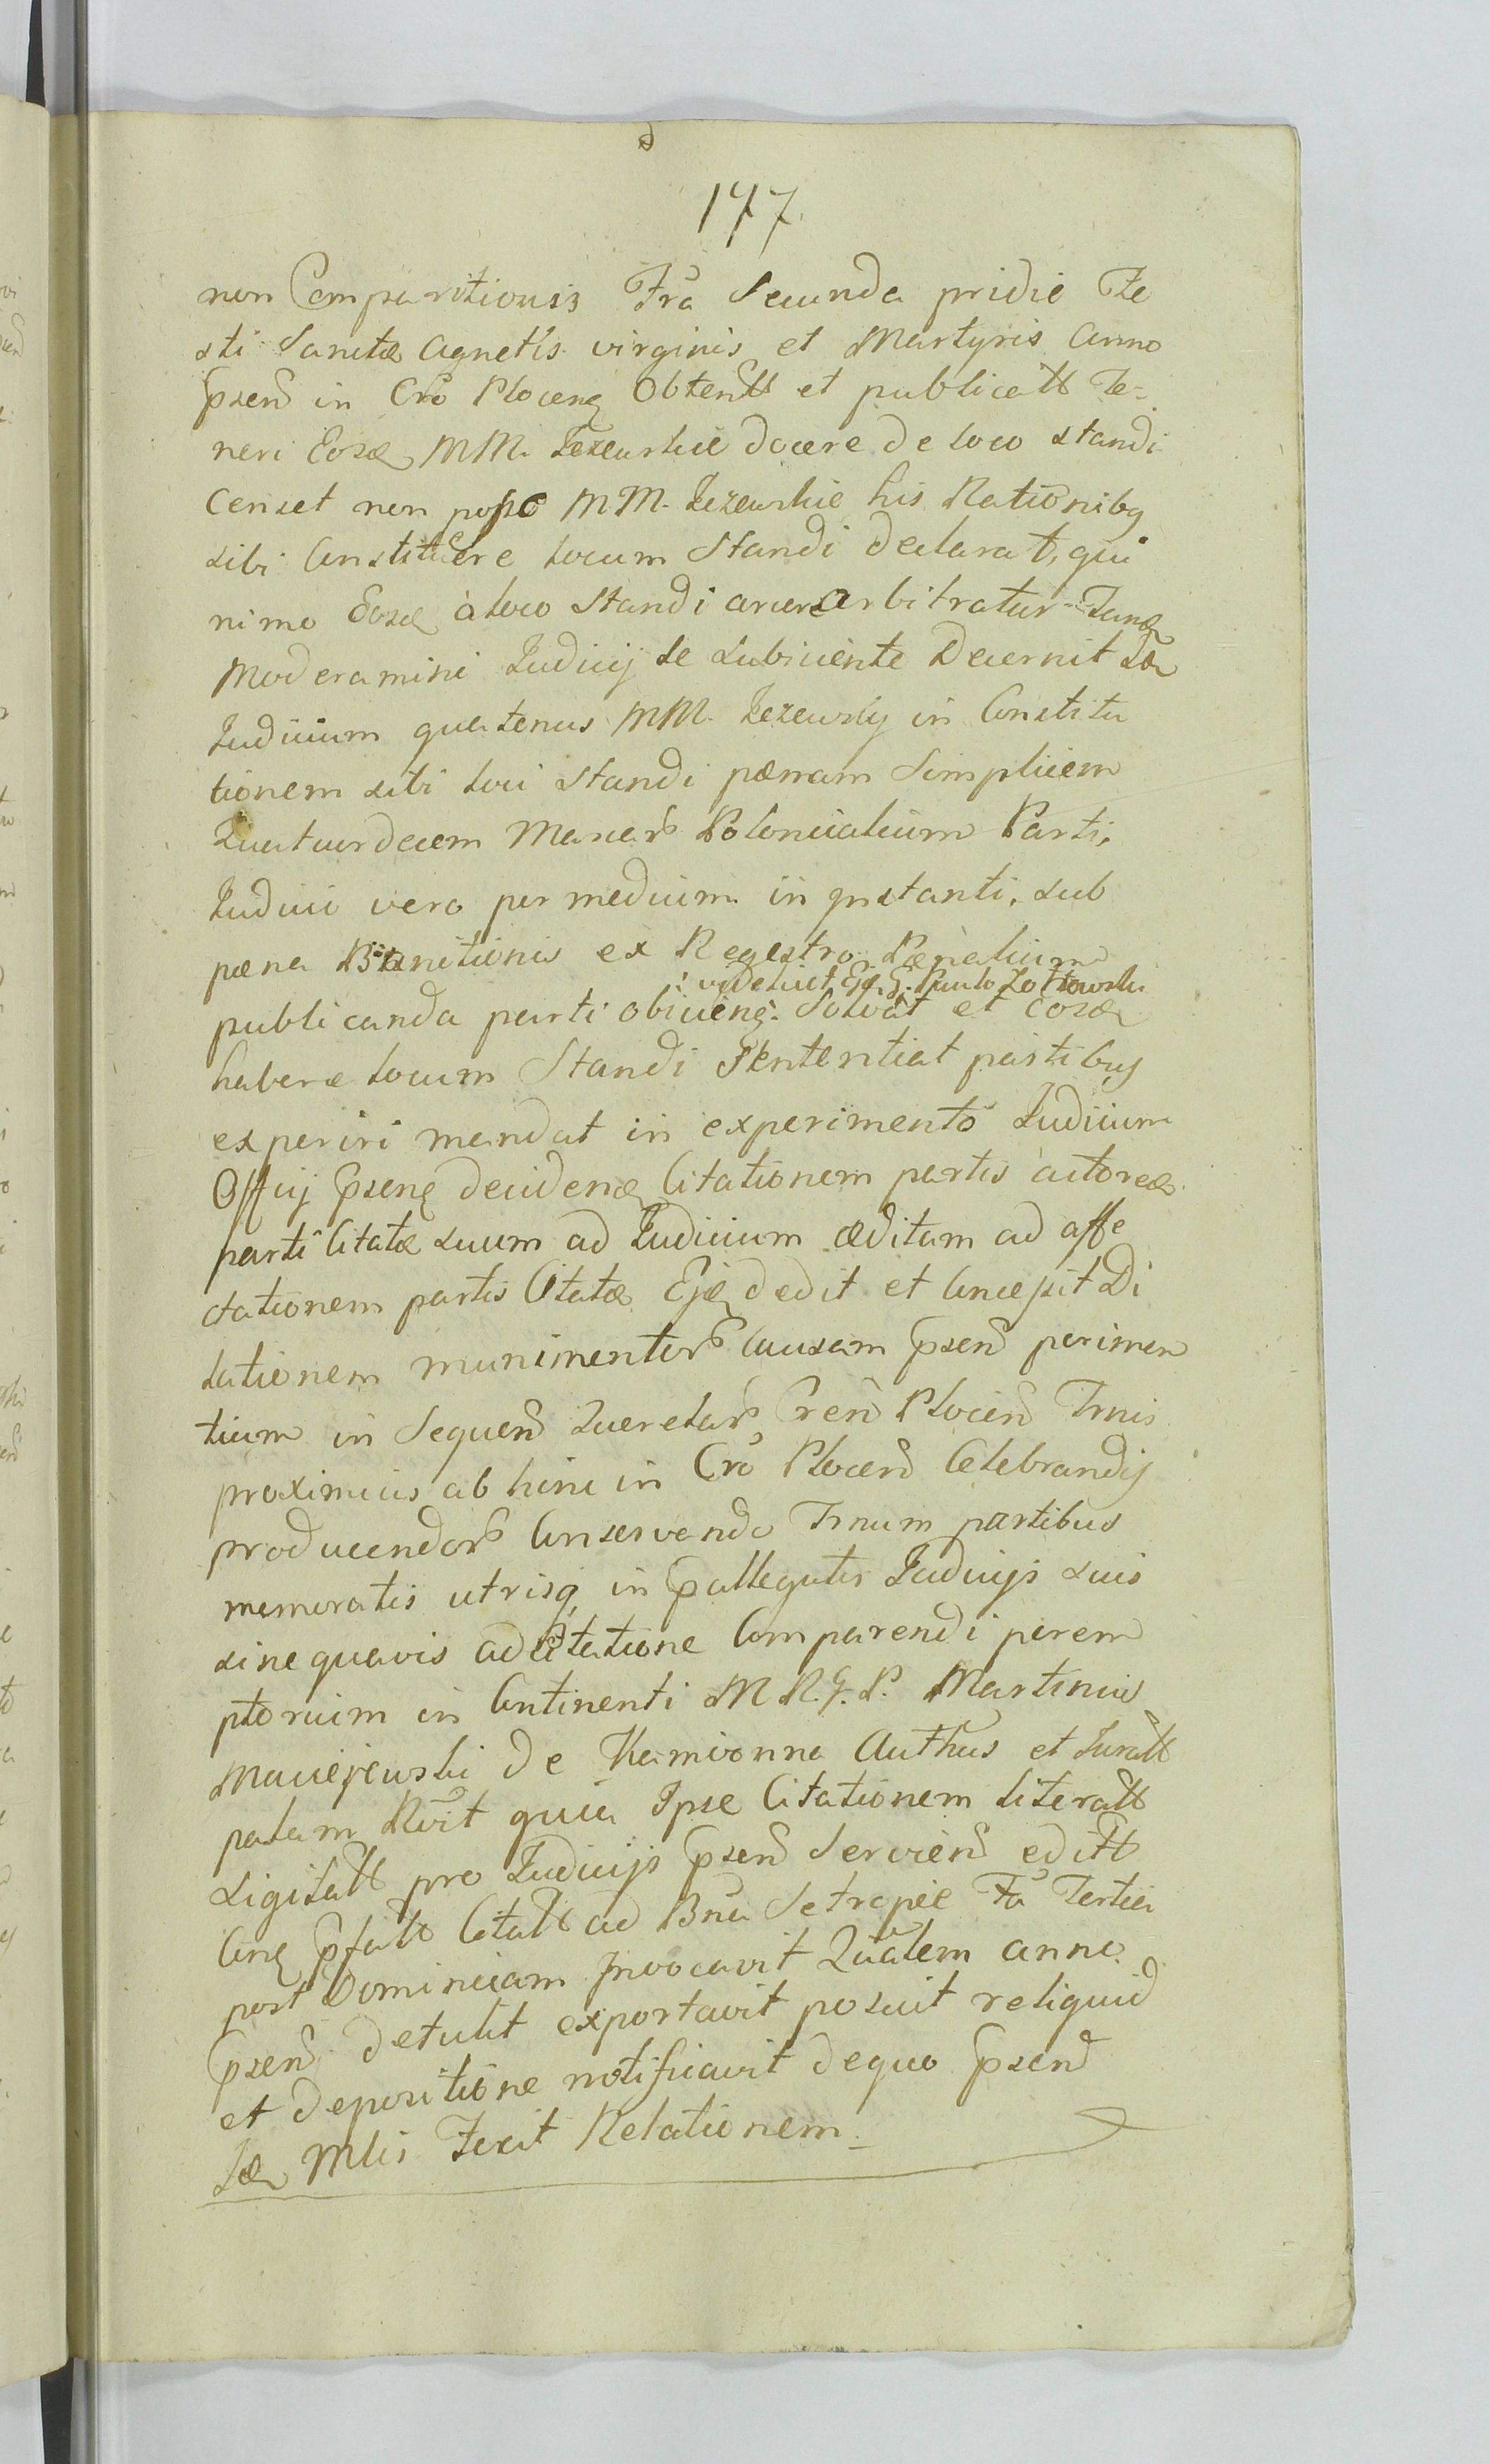 177.
non Comparitionis Fra Secunda pridie Fe
sti Sanctæ Agnetis virginis et Martyris Anno
psen in Cro Plocens Obtent et publicatt Te-
neri Eosd MM. Jezewskie docere de loco standi
Censet non posse MM. Jezewskie his Rationibq
sibi Constituere locum Standi declarat, qui
nimo Eosd à loco Standi arcere arbitratur Tand
Moderamini Judicij se Subiiciente Decernit Id
Judicium quatenus MM. Jezewscy in Constitu
tionem sibi loci standi pænam Simplicem
Quatuordecem Marcar Polonicalium Parti,
Judicii vero per medium in instanti, sub
pæna Banitionis ex Regestro Pænalium
: videlicet Ejq G. Paulo Zottowski
publicanda parti obiicieng. Solvat et Eosd
habere locum Standi Sententiat partibus
experiri mandat in experimento Judicium
Officij psens decidend Citationem partis actoreæ
parti Citatæ suum ad Judicium æditam ad affe
ctationem partis Citatæ Ejd dedit et Concessit Di
lationem munimentor Causam psen perimen
tium in Sequen Querelar Gren Plocen Trnis
proximius ab hinc in Cro Plocen Celebrandis
producendor Conservando Trnum partibus
memoratis utrisq in pallegatis Judicijs suis
sine quavis adcitatione Comparendi perem
ptorium in Continenti M R. G. P. Martinus
Maciejewski de Kamionna Authus et Juratt
palam Rvit quia Ipse Citationem literatt
sigillatt pro Judicijs psen Servien editt
Cong pfatt Citatt ad Bna Setropie Fa Tertia
post Dominicam Invocavit Qualem anno
psen detulit exportavit posuit reliquid
et depositione notificavit dequo psen
Id Mlis Fecit Relationem.